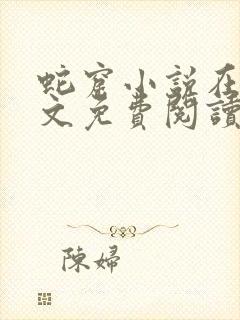 蛇窟小說在
文免費閱讀
陳婦